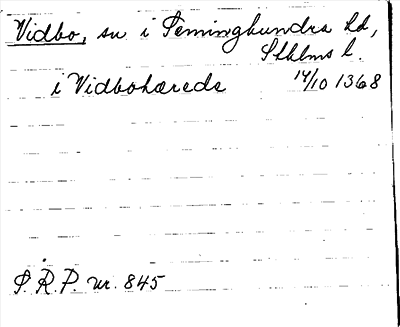 Vidbo, sn i Seminghundra hd,
Sthlms l.
i Vidbohærede 14/10 1368
S.R.P. nr. 845